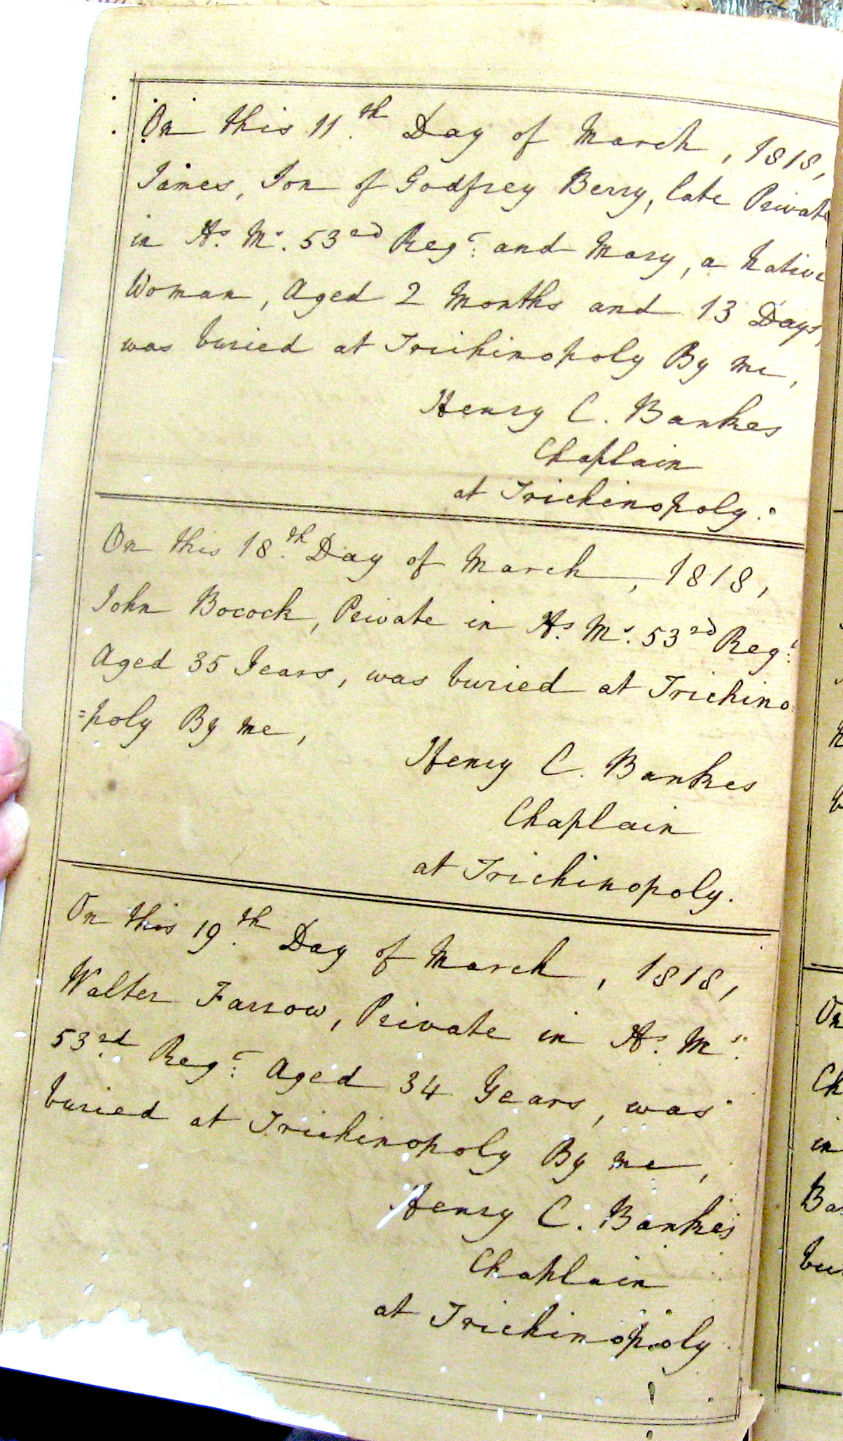 On this 11.th Day of March, 1818,
James, Son of Godfrey Berry, late Private
in H.s M.s 53rd Reg.t and Mary, a Native
Woman, Aged 2 Months and 13 Days,
was buried at Trichinopoly By me,
Henry C. Bankes
Chaplain
at Trichinopoly.
On this 18.th Day of March, 1818,
John Bocock, Private in H.s M.s 53rd Reg.t
Aged 35 Years, was buried at Trichino
=poly By me,
Henry C. Bankes
Chaplain
at Trichinopoly.
On this 19.th Day of March, 1818,
Walter Farrow, Private in H.s M.s
53rd Reg.t Aged 34 Years, was
buried at Trichinopoly By me,
Henry C. Bankes
Chaplain
at Trichinopoly
On
Ch
in
Ba
bu